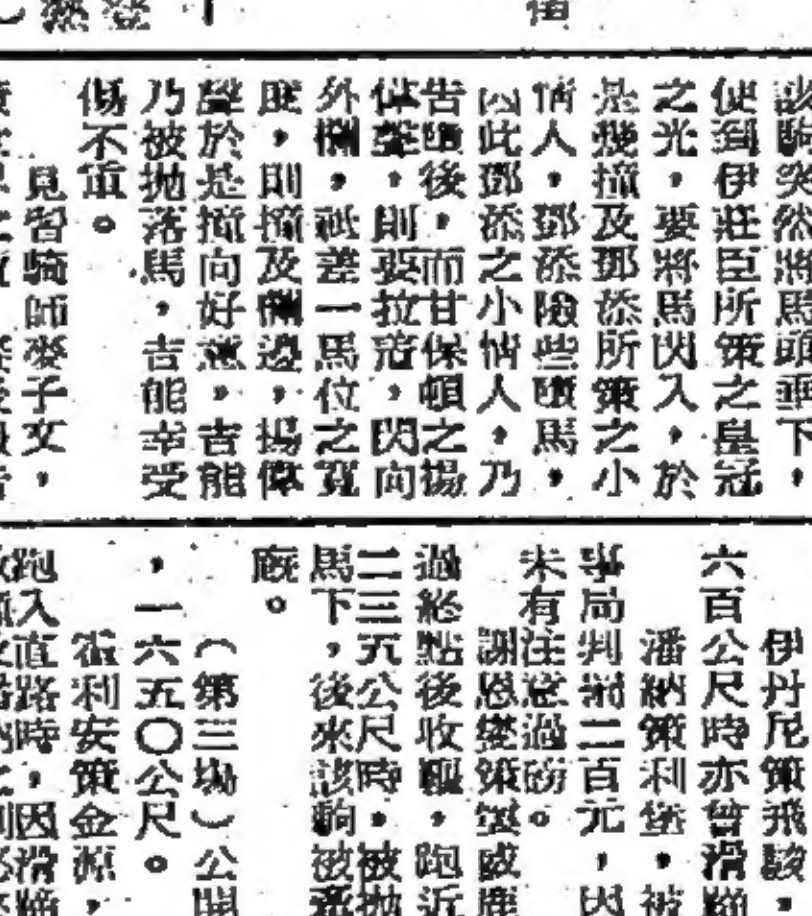 該駒突然將馬頭垂下，
使到伊莊臣所策之皇冠
之光，要將馬閃入，於
是幾撞及鄧添所策之小
情人，鄧添險些墮馬，
因此鄧添之小情人，乃
告墮後，而甘保頓之揚
偉聲，則要拉窄，閃向
外欄，祇差一馬位之寬
度，則撞及欄邊，揚偉
聲於是撞向好意，吉能
乃被拋落馬，吉能幸受
傷不重。
見習騎師麥子文，
伊丹尼策飛駿，
六百公尺時亦曾滑蹄
潘納策利堡，被
事局判罰二百元，因
未有注意過磅。
謝恩變策盛鹿
過終點後收韁，跑近
二三五公尺時，被拋
馬下，後來該駒被
廐。
（第三場）公開
，一六五〇公尺。
霍利安策金源，
跑入直路時，因滑蹄